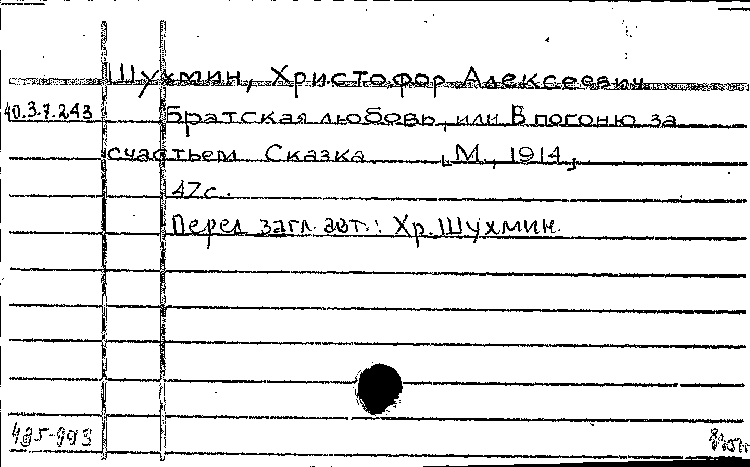 Шухмин, Христофор Алексеевич
40.3.7.243 Братская любовь, или В погоню за
счастьем. Сказка. [М., 1914]
47 с.
Перед загл. авт.: Хр. Шухмин.